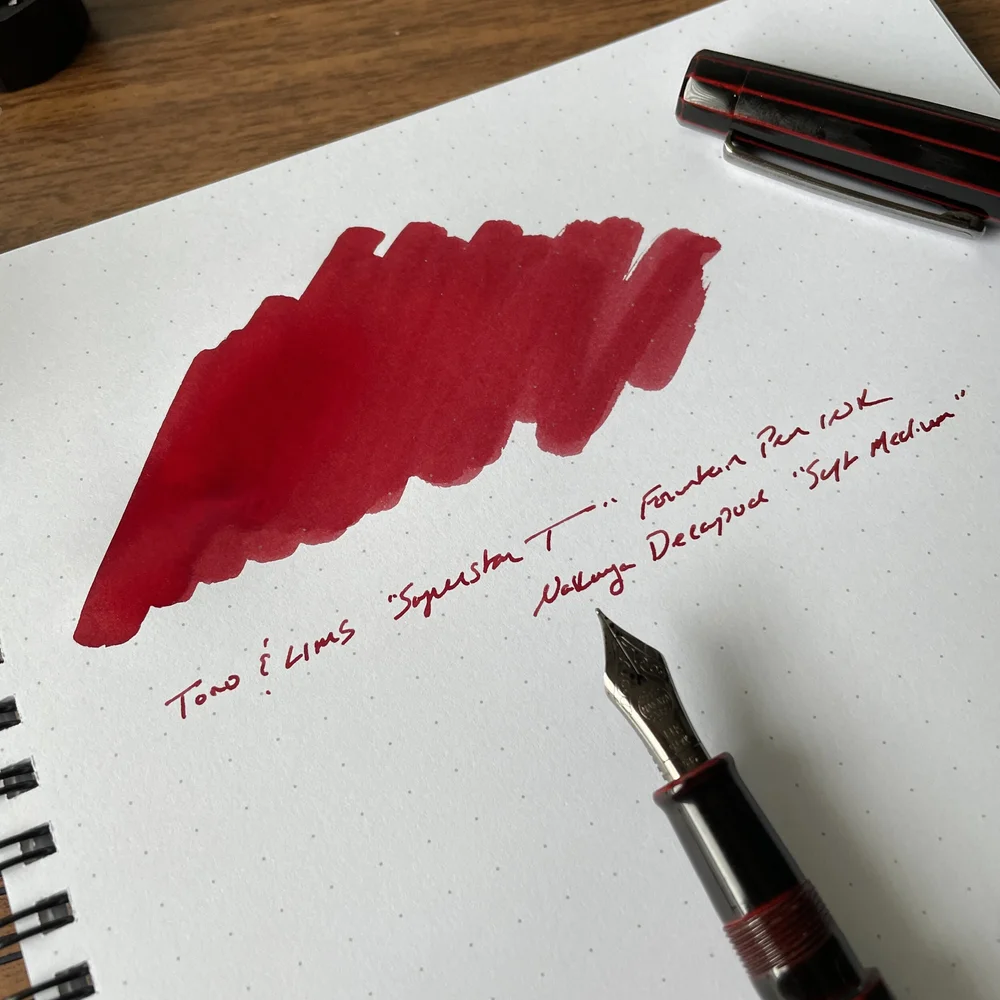 Tono & Lims "Superstar T" Fountain Pen INK
Nakaya Decapod "Soft Medium"